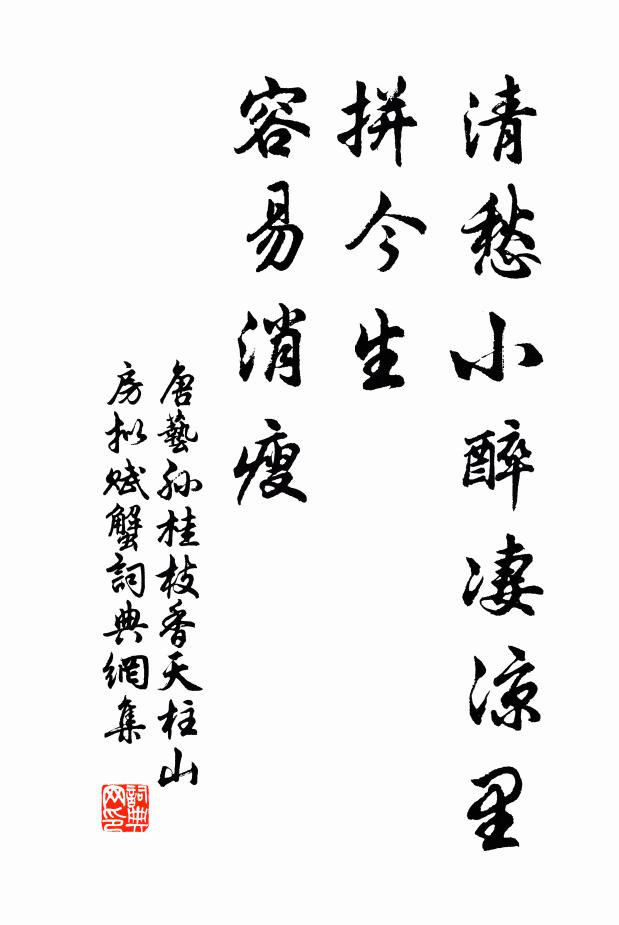 清愁小醉凄涼里
拼今生
容易消瘦
唐藝孫桂枝香天柱山
房拟赋蟹詞典網集
詞典
网印